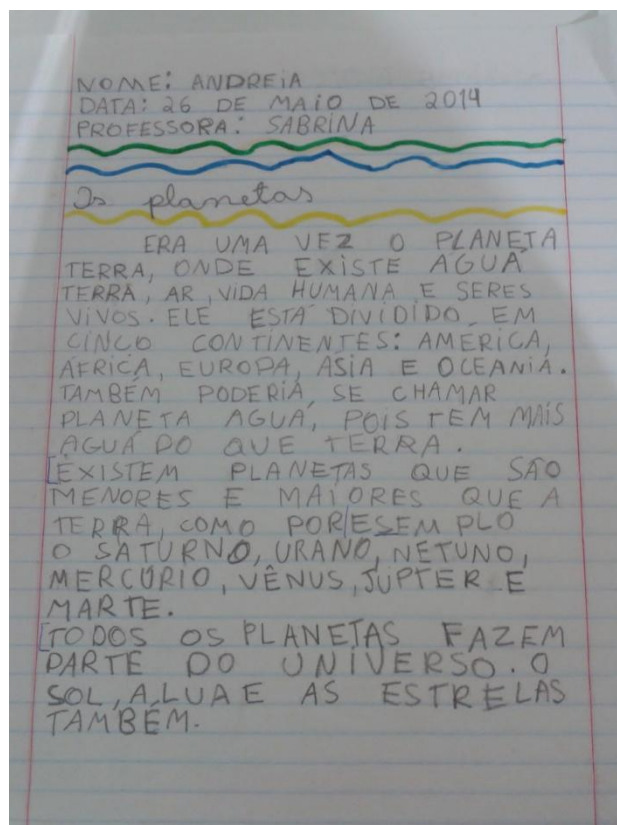 NOME: ANDREIA
DATA: 26 DE MAIO DE 2014
PROFESSORA: SABRINA
Os planetas
ERA UMA VEZ O PLANETA
TERRA, ONDE EXISTE ÁGUA
TERRA, AR, VIDA HUMANA E SERES
VIVOS. ELE ESTÁ DIVIDIDO EM
CINCO CONTINENTES: AMÉRICA,
ÁFRICA, EUROPA, ÁSIA E OCEANIA.
TAMBÉM PODERIA SE CHAMAR
PLANETA AGUÁ, POIS TEM MAIS
AGUÁ DO QUE TERRA.
[EXISTEM PLANETAS QUE SÃO
MENORES E MAIORES QUE A
TERRA, COMO POR/ESEMPLO
O SATURNO, URANO, NETUNO,
MERCÚRIO, VÊNUS, JUPTER E
MARTE.
[TODOS OS PLANETAS FAZEM
PARTE DO UNIVERSO. O
SOL, A LUA E AS ESTRELAS
TAMBÉM.